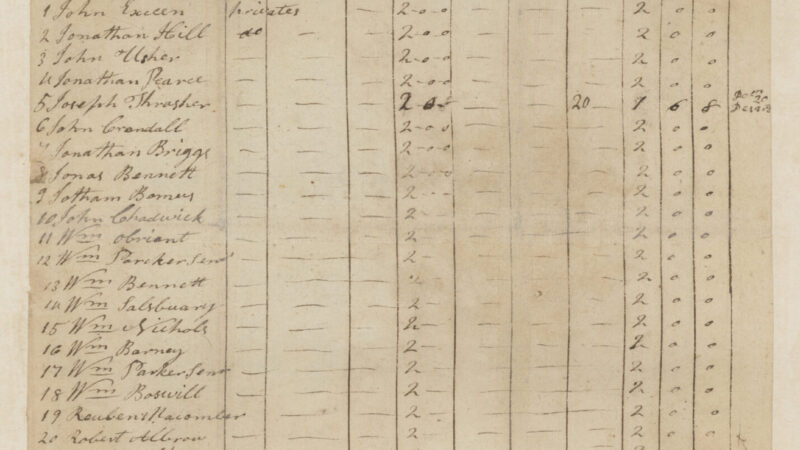 1 John Exceen privates 2-0-0 2 0 0
2 Jonathan Hill do 2-0-0 2 0 0
3 John Usher 2-0-0 2 0 0
4 Jonathan Pearce 2-0-0 2 0 0
5 Joseph Thrasher 2-0- 20 1 6 8
6 John Crandall 2-0-0 2 0 0
7 Jonathan Briggs 2-0-0 2 0 0
8 Jonas Bennett 2-0-0 2 0 0
9 Jotham 2-0-0 2 0 0
10 John Chadwick 2- 2 0 0
11 Wm Obriant 2 2 0 0
12 Wm Parcker 2- 2 0 0
13 Wm Bennett 2 0 0
14 Wm Salsbuary 2- 2 0 0
15 Wm Nichols 2- 2 0 0
16 Wm Barney 2- 2 0 0
17 Wm Parker 2- 2 0 0
18 Wm Boswill 2- 2 0 0
19 Reuben Macomber 2- 2 0 0
20 Robert 2- 2 0 0